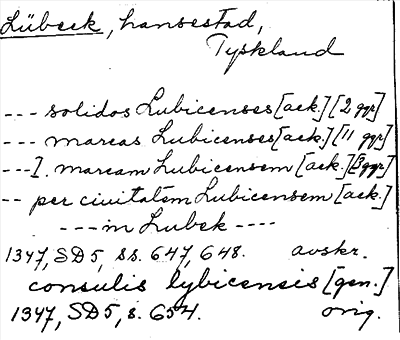 Lübeck, hansestad,
Tyskland
--- solidos Lubicenses [ack.] [2 ggr]
--- marcas Lubicenses [ack.] [11 ggr]
---I. marcam Lubicensem [ack.] [3 ggr]
-- per ciuitatem Lubicensem [ack.]
---in Lubek ----
1347, SD5, ss. 647, 648. avskr.
consulis lybicensis [gen.]
1347, SD5, s. 654. orig.